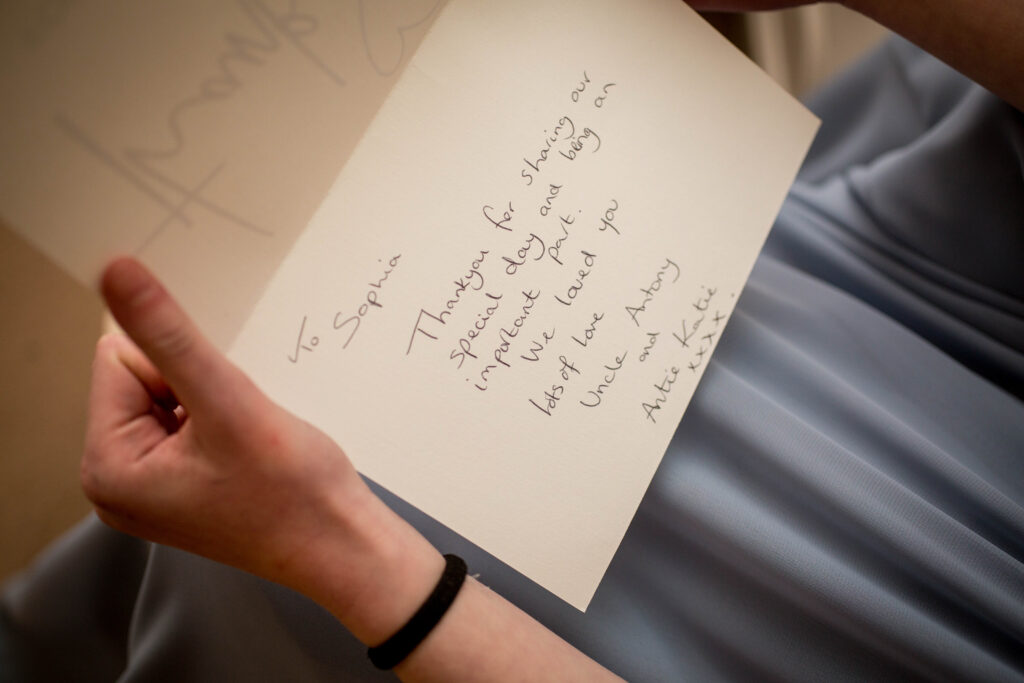 Thank
To
Sophia
Thankyou for sharing our
special day and being an
important part.
We loved you
lots of love
Uncle Antony
and
Antie Katie
xxxx.